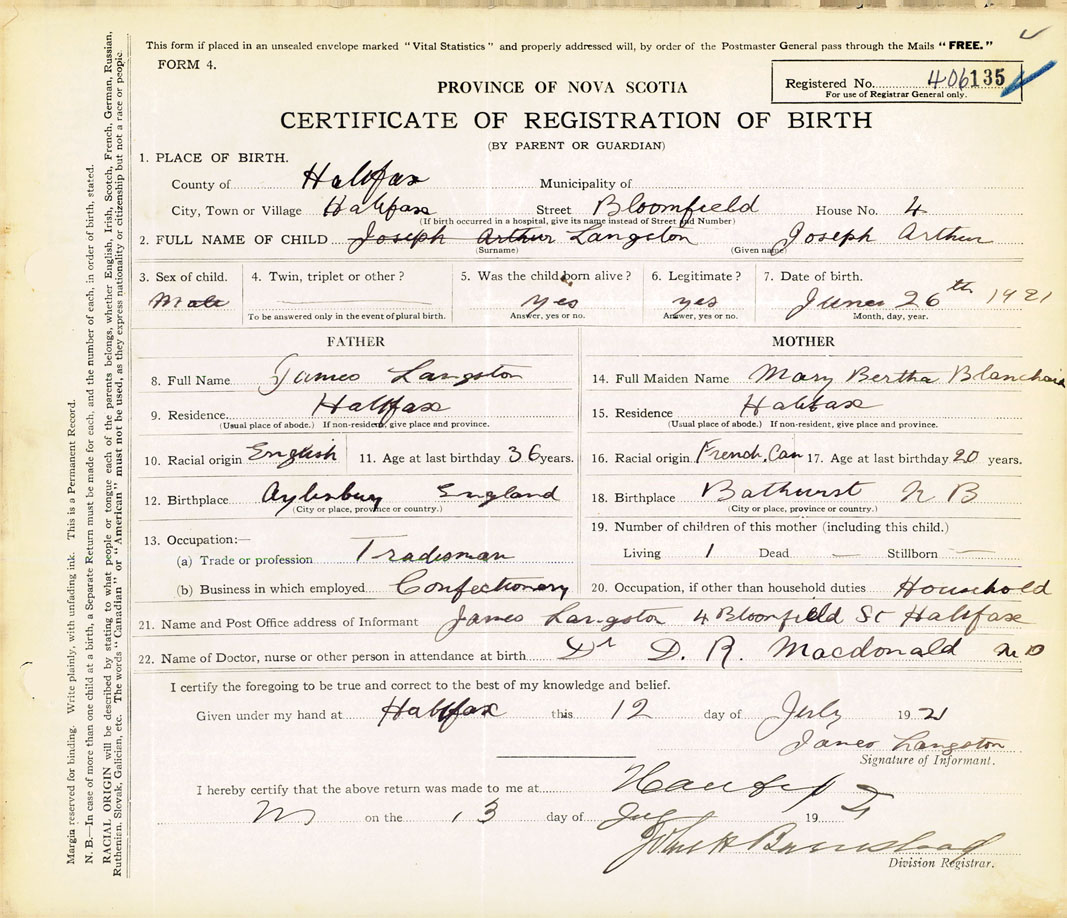 This form if placed in an unsealed envelope marked "Vital Statistics" and properly addressed will, by order of the Postmaster General pass through the Mails "FREE."
FORM 4.
Registered No. 406135
For use of Registrar General only.
PROVINCE OF NOVA SCOTIA
CERTIFICATE OF REGISTRATION OF BIRTH
(BY PARENT OR GUARDIAN)
1. PLACE OF BIRTH.
County of Halifax Municipality of
City, Town or Village Halifax Street Bloomfield House No. 4
(If birth occurred in a hospital, give its name instead of Street and Number)
2. FULL NAME OF CHILD Joseph Arthur Langston Joseph Arthur
(Surname) (Given name)
3. Sex of child. 4. Twin, triplet or other? 5. Was the child born alive? 6. Legitimate? 7. Date of birth.
Male yes yes June 26th 1921
To be answered only in the event of plural birth. Answer, yes or no. Answer, yes or no. Month, day, year.
FATHER MOTHER
8. Full Name James Langston 14. Full Maiden Name Mary Bertha Blanchard
9. Residence Halifax 15. Residence Halifax
(Usual place of abode.) If non-resident, give place and province. (Usual place of abode.) If non-resident, give place and province.
10. Racial origin English 11. Age at last birthday 36 years. 16. Racial origin French.Can 17. Age at last birthday 20 years.
12. Birthplace Aylesbury England 18. Birthplace Bathurst N B
(City or place, province or country.) (City or place, province or country.)
13. Occupation:— 19. Number of children of this mother (including this child.)
(a) Trade or profession Tradesman Living 1 Dead — Stillborn —
(b) Business in which employed Confectionery 20. Occupation, if other than household duties Household
21. Name and Post Office address of Informant James Langston 4 Bloomfield St Halifax
22. Name of Doctor, nurse or other person in attendance at birth Dr D. R. Macdonald M D
I certify the foregoing to be true and correct to the best of my knowledge and belief.
Given under my hand at Halifax this 12 day of July 1921
James Langston
Signature of Informant.
I hereby certify that the above return was made to me at Halifax
on the 13 day of July 19
Division Registrar.
Margin reserved for binding. Write plainly, with unfading ink. This is a Permanent Record.
N. B.—In case of more than one child at a birth, a Separate Return must be made for each, and the number of each, in order of birth, stated.
RACIAL ORIGIN will be described by stating to what people or tongue each of the parents belongs, whether English, Irish, Scotch, French, German, Russian,
Ruthenian, Slovak, Galician, etc. The words "Canadian" or "American" must not be used, as they express nationality or citizenship but not a race or people.